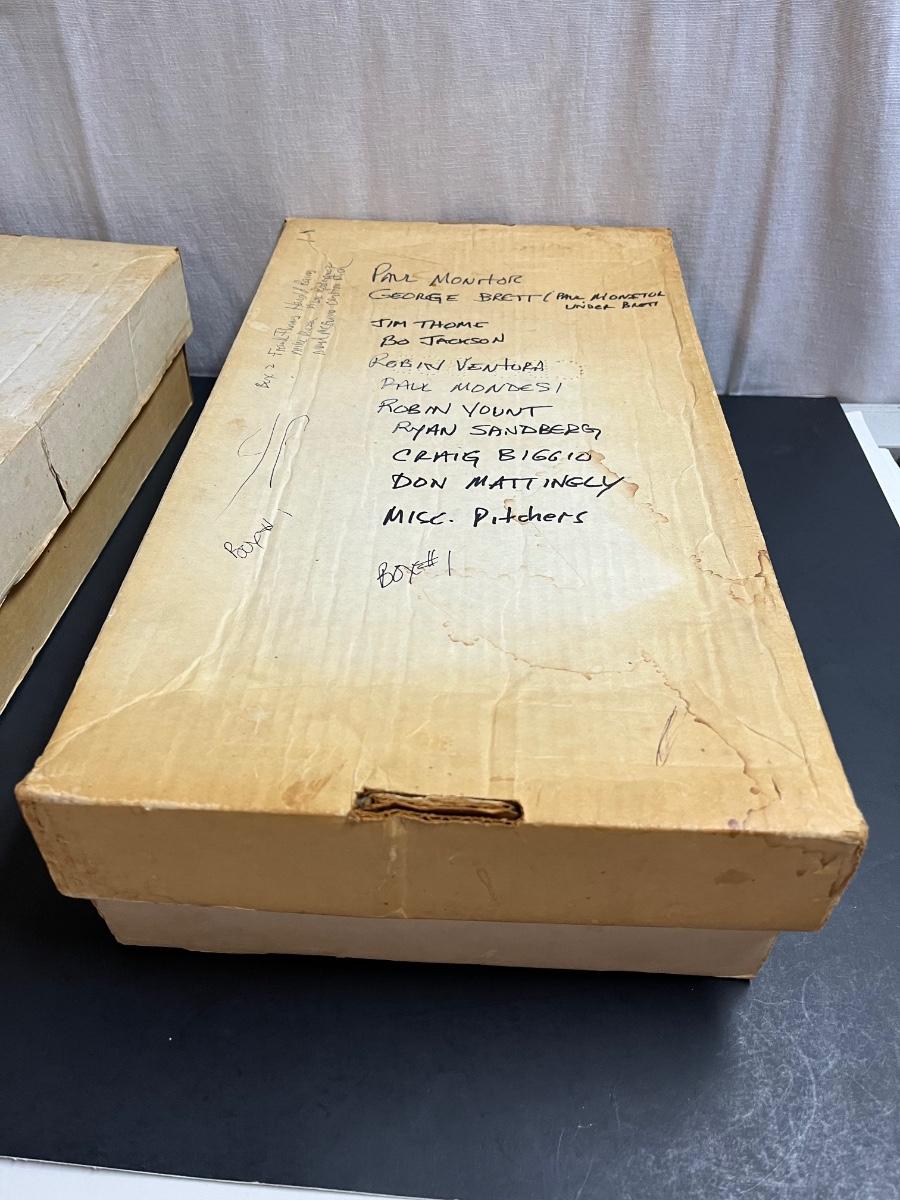 PAUL MONITOR
GEORGE BRETT (PAUL MONETOR
UNDER BRETT
JIM THOME
BO JACKSON
ROBIN VENTURA
RAUL MONDESI
ROBIN YOUNT
RYAN SANDBERG
CRAIG BIGGIO
DON MATTINGLY
MISC. PitcherS
BOX#1
Box 2 Frank Thomas
Mike Piazza
Box# 1